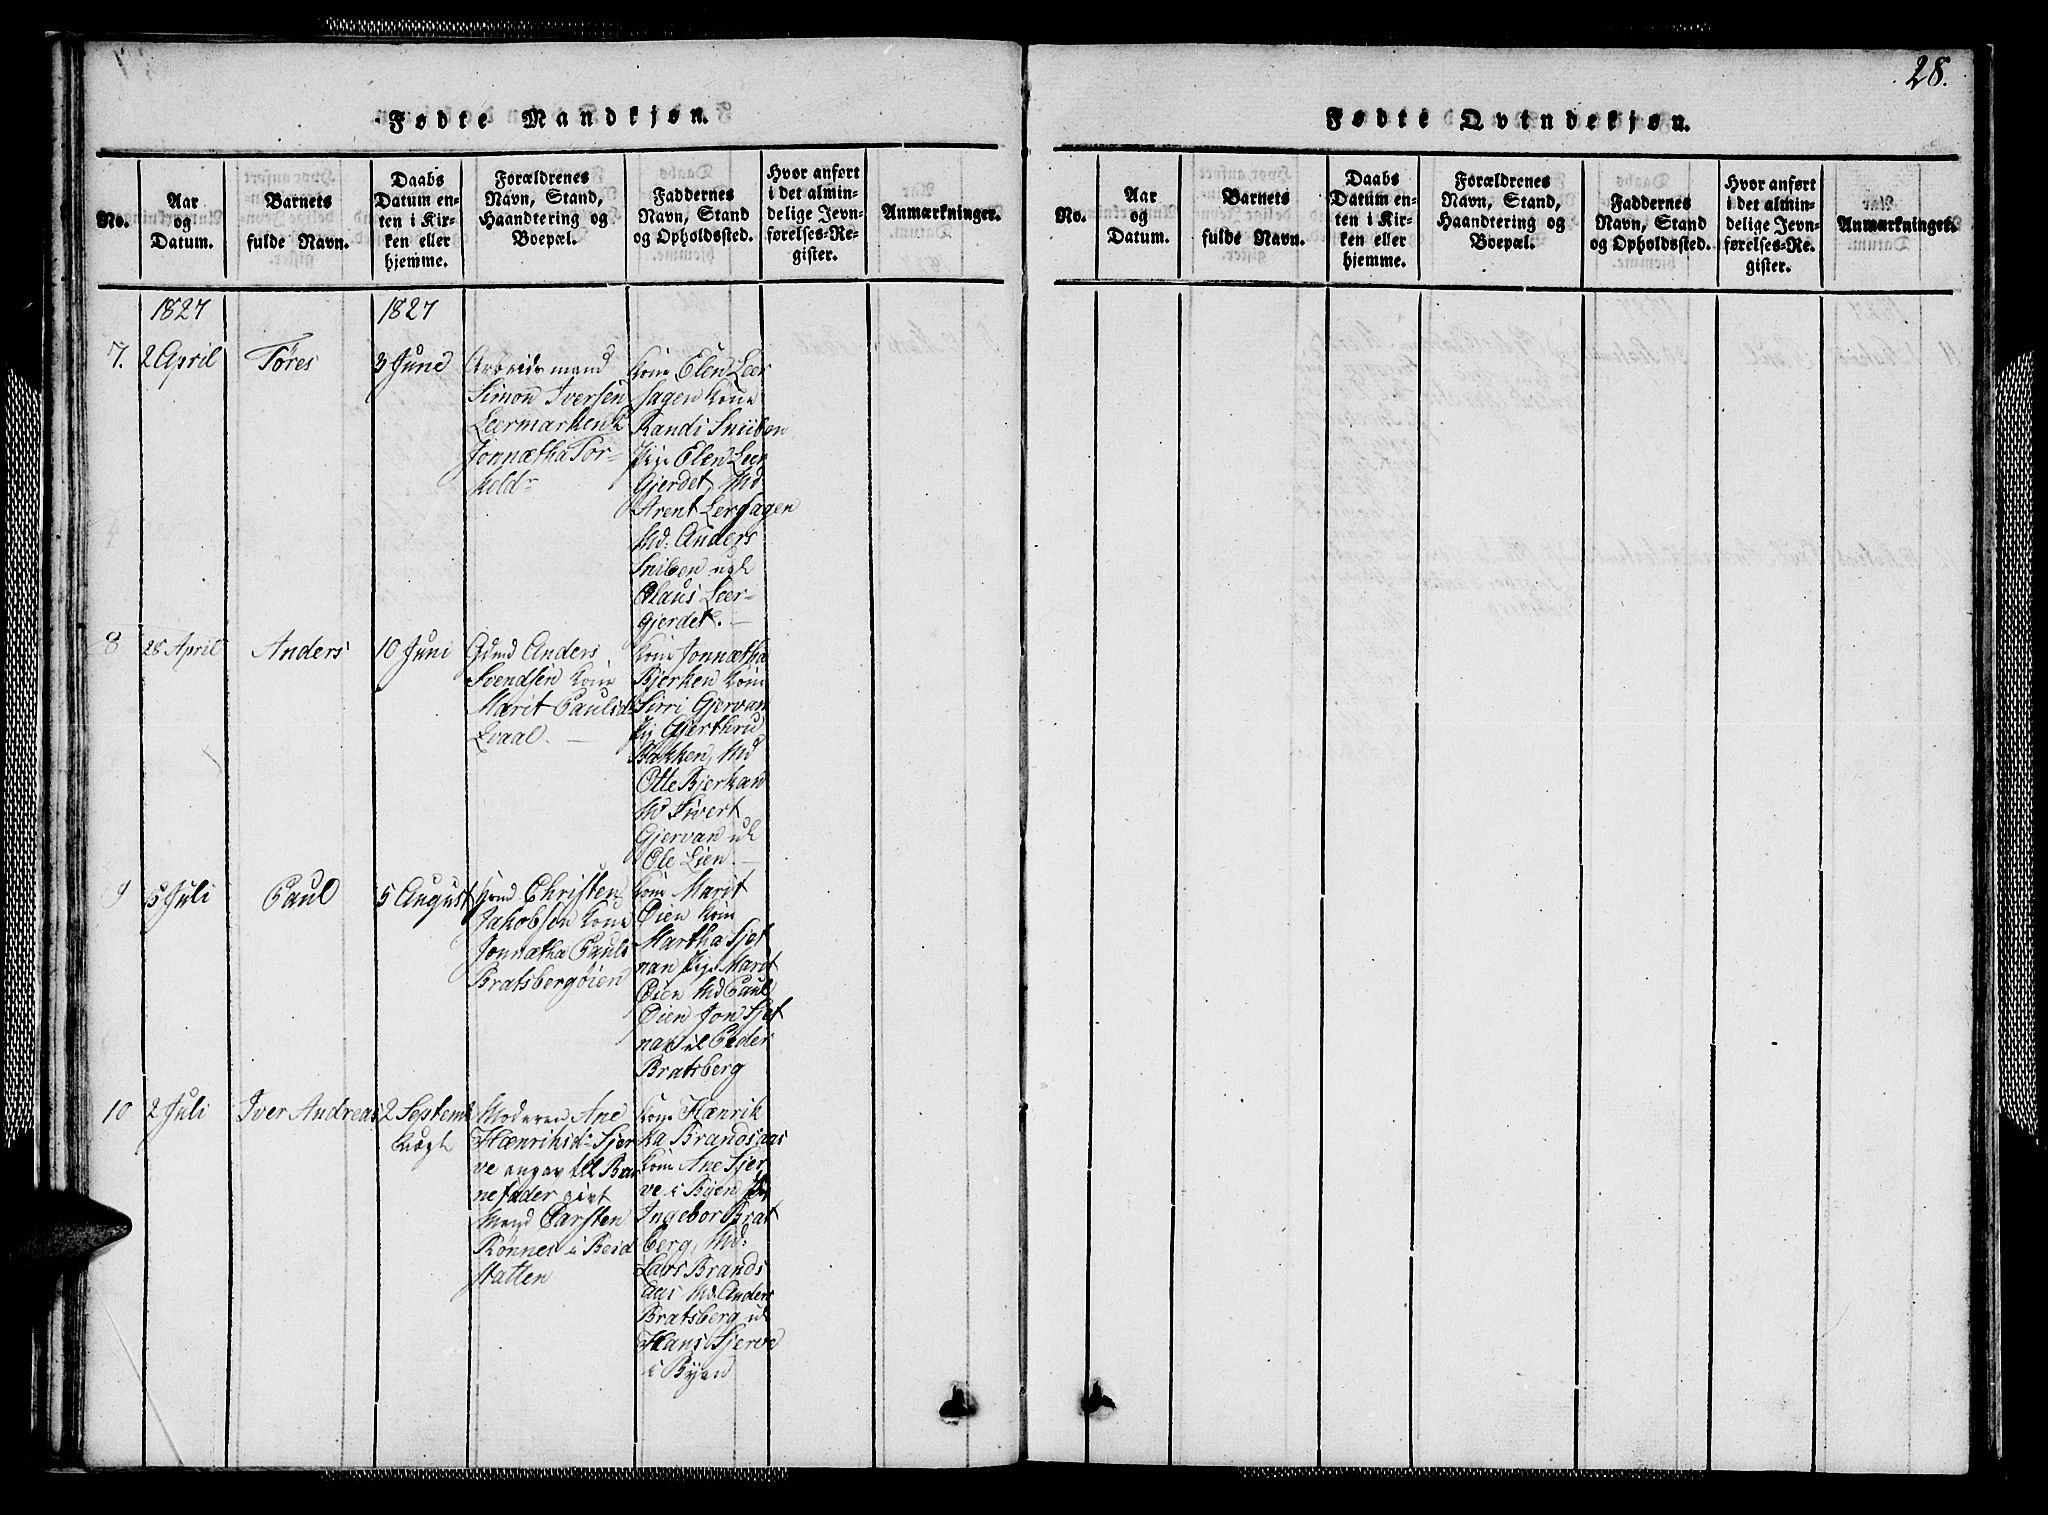 28.
Fødte Mandkjøn.
No.
Aar
og
Datum.
Barnets
fulde Navn.
Daabs
Datum en-
ten i Kir-
ken eller
hjemme.
Forældrenes
Navn, Stand,
Haandtering og
Boepæl.
Faddernes
Navn, Stand
og Opholdssted.
Hvor anført
i det almin-
delige Jevn-
førelses-Re-
gister.
Anmærkninger.
1827
1827
7.
2 April
Töres
3 June
Arbeidsmand
Simon Iversen
Leermarken K
Jonnætha Tor-
keldr
Kone Elen Leer
hagen Kone
Randi Sniiben
Pige Elen Leer
Gjerdet, Md
Arent Lerhagen
Md. Anders
Sniben ugk
Claus Leer-
gjerdet.
8
28 April
Anders
10 Juni
Gdmd Anders
Svendsen Kone
Marit Paulsd
Lvaal.
Kone Jonnætha
Bjerken Kone
Sirri Gjervan
Pig Gjerthrud
Bakken, Md
Otte Bjerkan
Md Sivert
Gjervan uk
Ole Lien.
9
5 Juli
Paul
5 August
Hmd Christen
Jakobsen Kone
Jonnætha Pauls
Bratsbergöien
Kone Marit
Öien Kone
Martha Sjet
nan Pige Marit
Öien Md Paul
Öien Jon Sjet
nan uk Peder
Bratsberg
10
2 Juli
Iver Andreas
2 Septemb
uægte
Moderen Ane
Hænriksd. Sjer
ve angav til Bar
nefader givt
Mand Carsten
Rönnes i Beid
statten
Kone Hænrik
ka Brandsaas
Kone Ane Sjer
ve i Byen Pig
Ingebor Brat
berg, Md.
Lars Brands
aas Md Anders
Bratsberg uk
Hans Sjerve
i Byen
Fødte Qvindekjøn.
No.
Aar
og
Datum.
Barnets
fulde Navn.
Daabs
Datum en-
ten i Kir-
ken eller
hjemme.
Forældrenes
Navn, Stand,
Haandtering og
Boepæl.
Faddernes
Navn, Stand
og Opholdssted.
Hvor anført
i det almin-
delige Jevn-
førelses-Re-
gister.
Anmærkninger.